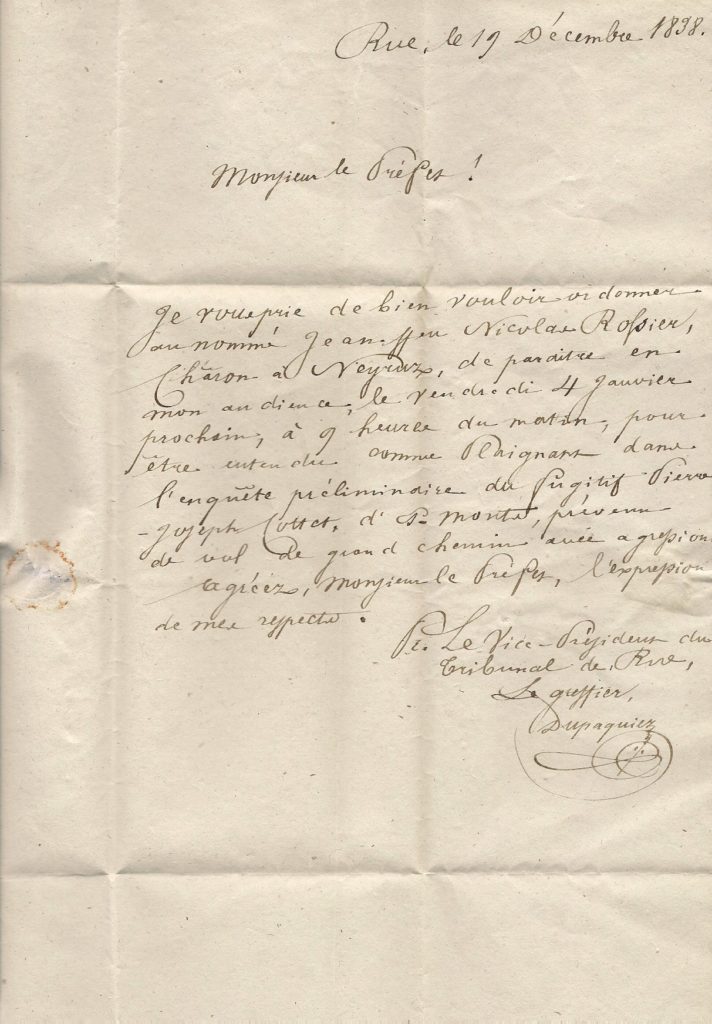 Rue, le 19 Décembre 1838.
Monsieur le Préfet !
Je vous prie de bien vouloir ordonner
au nommé Jean, ffeu Nicolas Rossier,
Charon à Neyruz, de paraître en
mon audience, le vendredi 4 Janvier
prochain, à 9 heures du matin, pour
être entendu comme Plaignant dans
l'enquête préliminaire du fugitif Pierre
-Joseph Cottet, d' prévenu
de vol de grand chemin avec agression.
Agréez, Monsieur le Préfet, l'expression
de mes respects.
Pr. Le Vice-Président du
Tribunal de Rue,
Le greffier,
Dupaquier